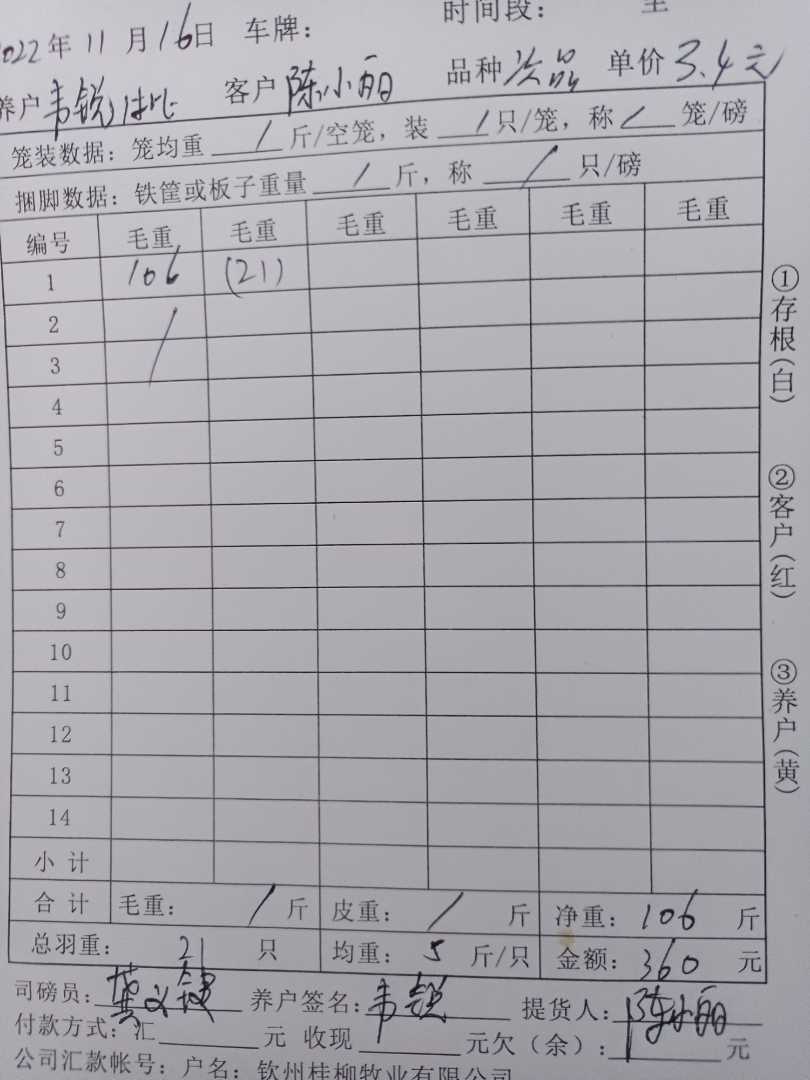 2022年 11 月 16日 车牌： 时间段： 至
养户 韦锐 客户 陈小丽 品种 次品 单价 3.4元
笼装数据：笼均重 / 斤/空笼，装 / 只/笼，称 / 笼/磅
捆脚数据：铁筐或板子重量 / 斤，称 / 只/磅
编号 毛重 毛重 毛重 毛重 毛重 毛重
1 106 (21)
2 /
3
4
5
6
7
8
9
10
11
12
13
14
小 计
合 计 毛重： / 斤 皮重： / 斤 净重：106 斤
总羽重： 21 只 均重： 5 斤/只 金额：360 元
司磅员： 养户签名：韦锐 提货人：陈小丽
付款方式：汇 元 收现 元欠（余）： 元
公司汇款帐号：户名：钦州桂柳牧业有限公司
①存根（白）
②客户（红）
③养户（黄）